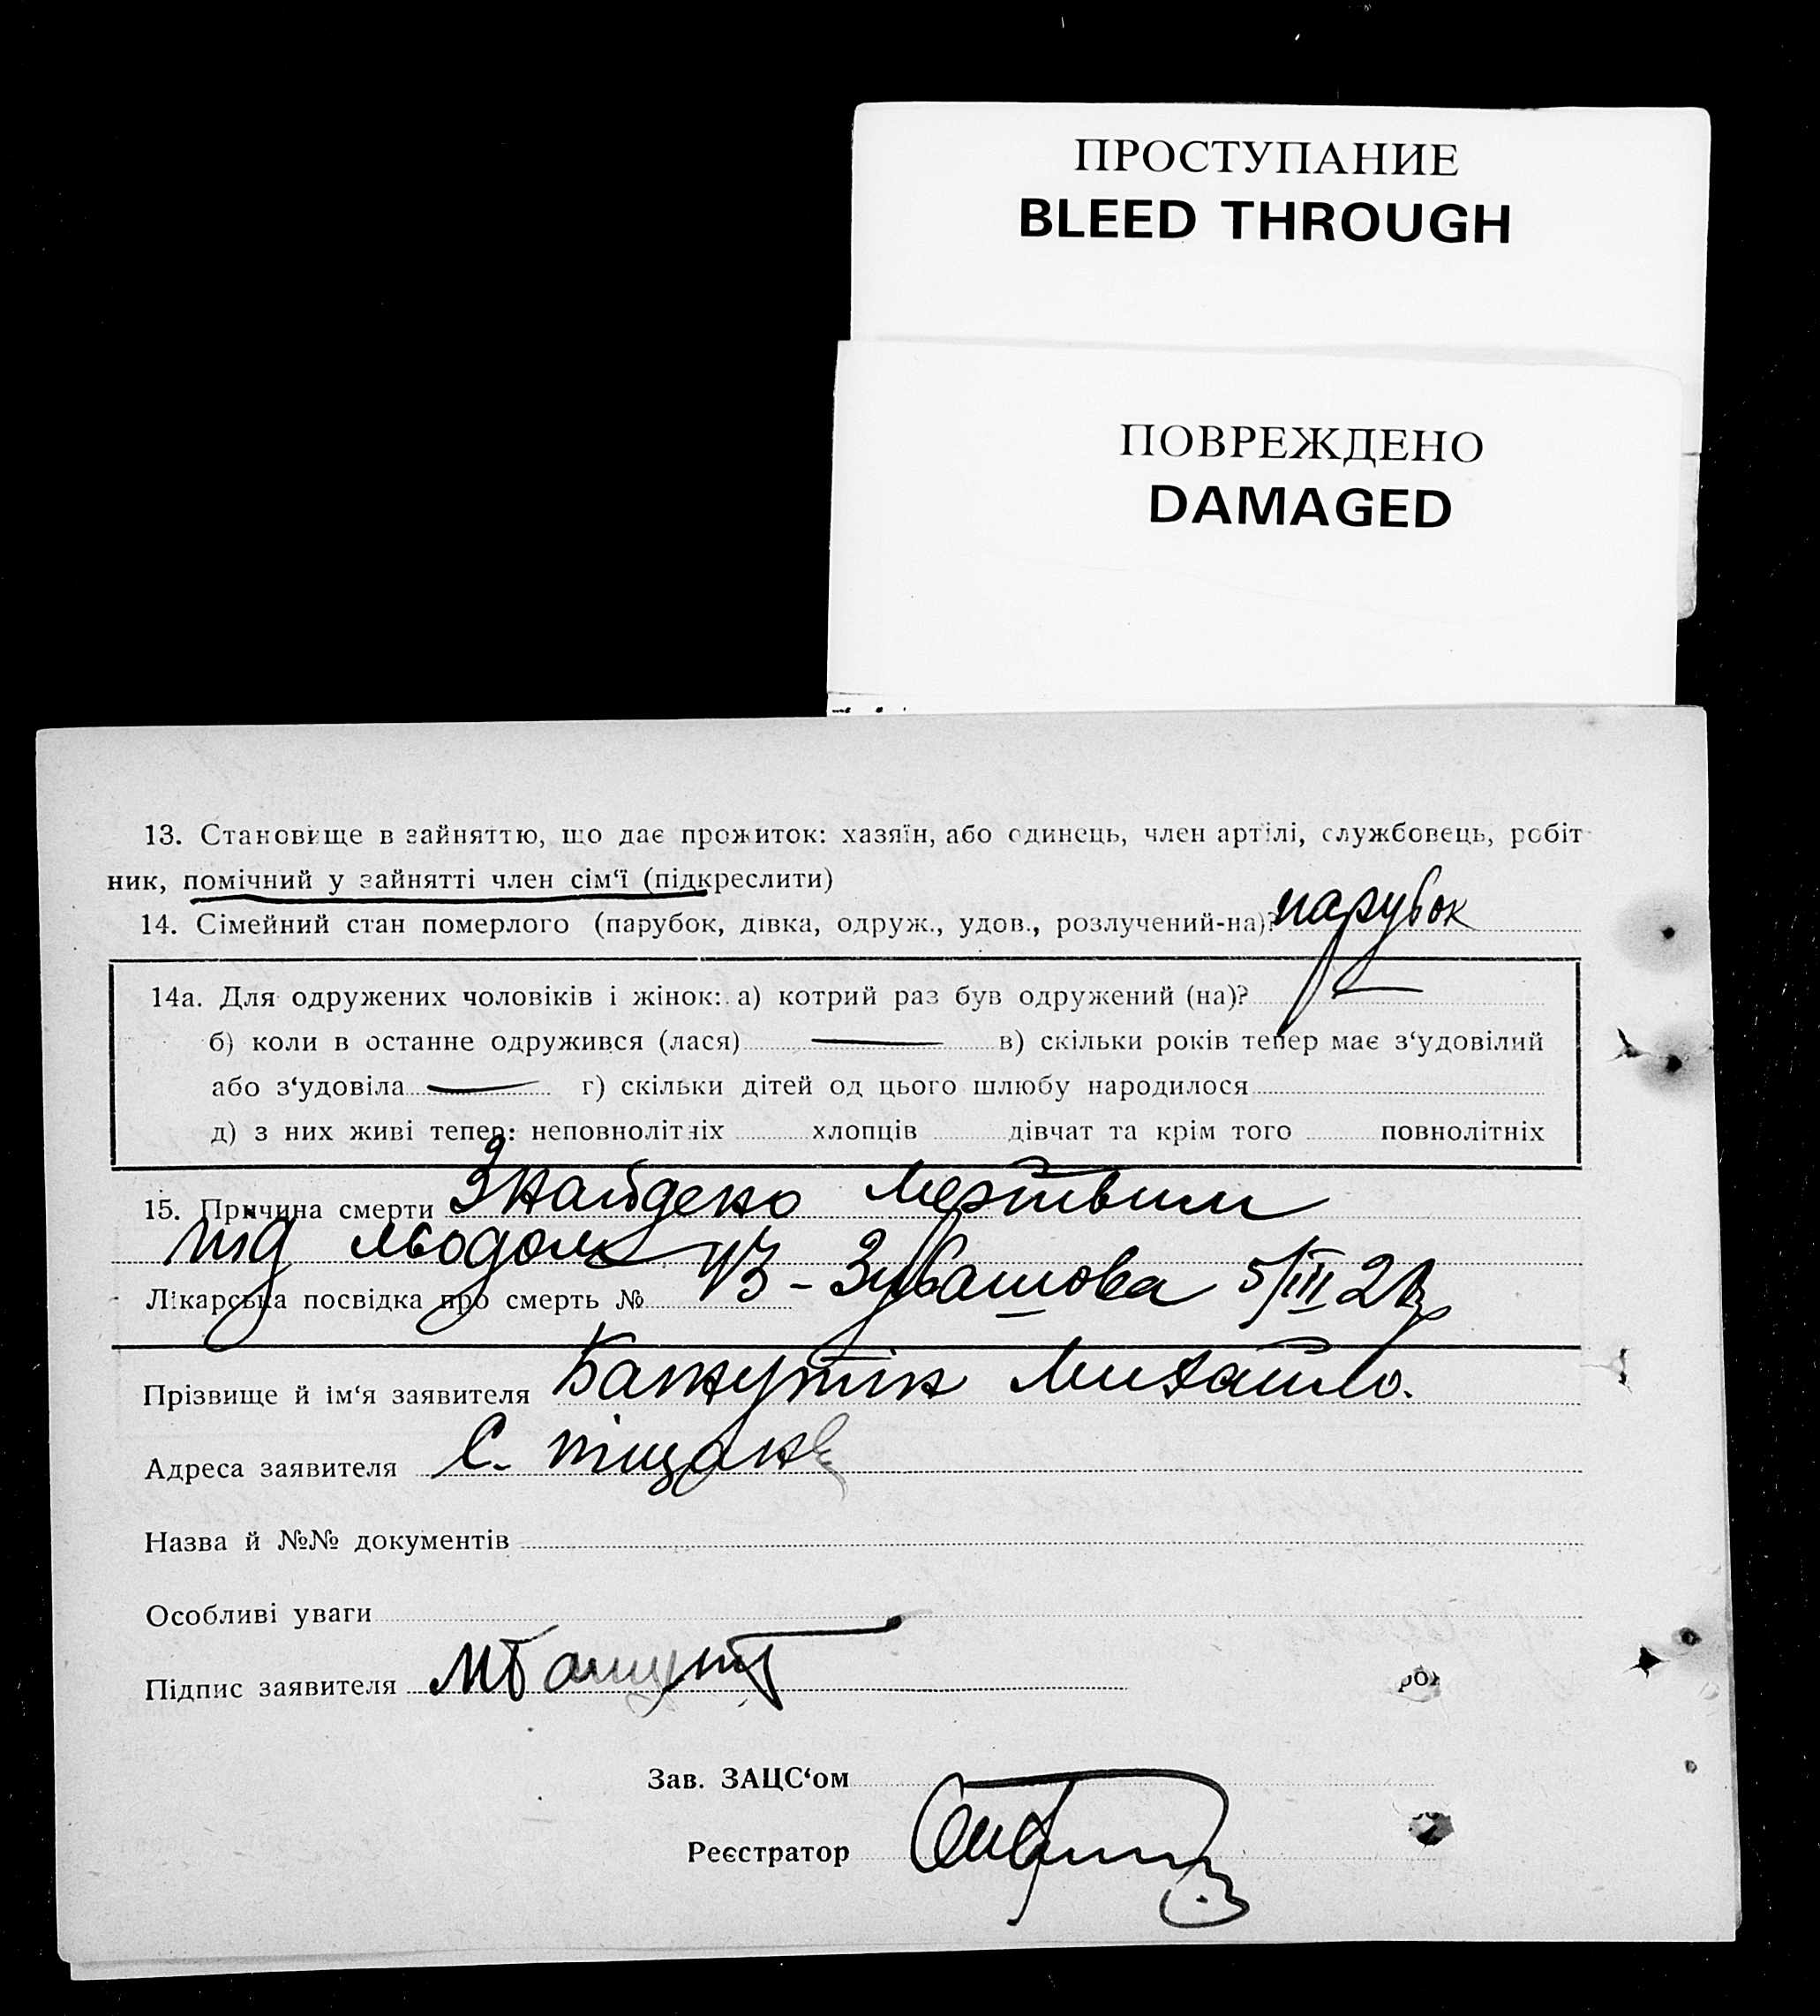 ПРОСТУПАНИЕ
BLEED THROUGH
ПОВРЕЖДЕНО
DAMAGED
13. Становище в зайняттю, що дає прожиток: хазяїн, або одинець, член артілі, службовець, робіт-
ник, помічний у зайнятті член сім‘ї (підкреслити)
14. Сімейний стан померлого (парубок, дівка, одруж., удов., розлучений-на)? парубок
14а. Для одружених чоловіків і жінок: а) котрий раз був одружений (на)? —
б) коли в останне одружився (лася) — в) скільки років тепер має з‘удовілий
або з‘удовіла — г) скільки дітей од цього шлюбу народилося
д) з них живі тепер: неповнолітніх хлопців дівчат та крім того повнолітніх
15. Причина смерти Знайдено мертвим
під льодом
Лікарська посвідка про смерть № 5/III
Прізвище й ім‘я заявителя Михайло.
Адреса заявителя С. Піщане
Назва й №№ документів
Особливі уваги
Підпис заявителя
Зав. ЗАЦС‘ом
Реєстратор